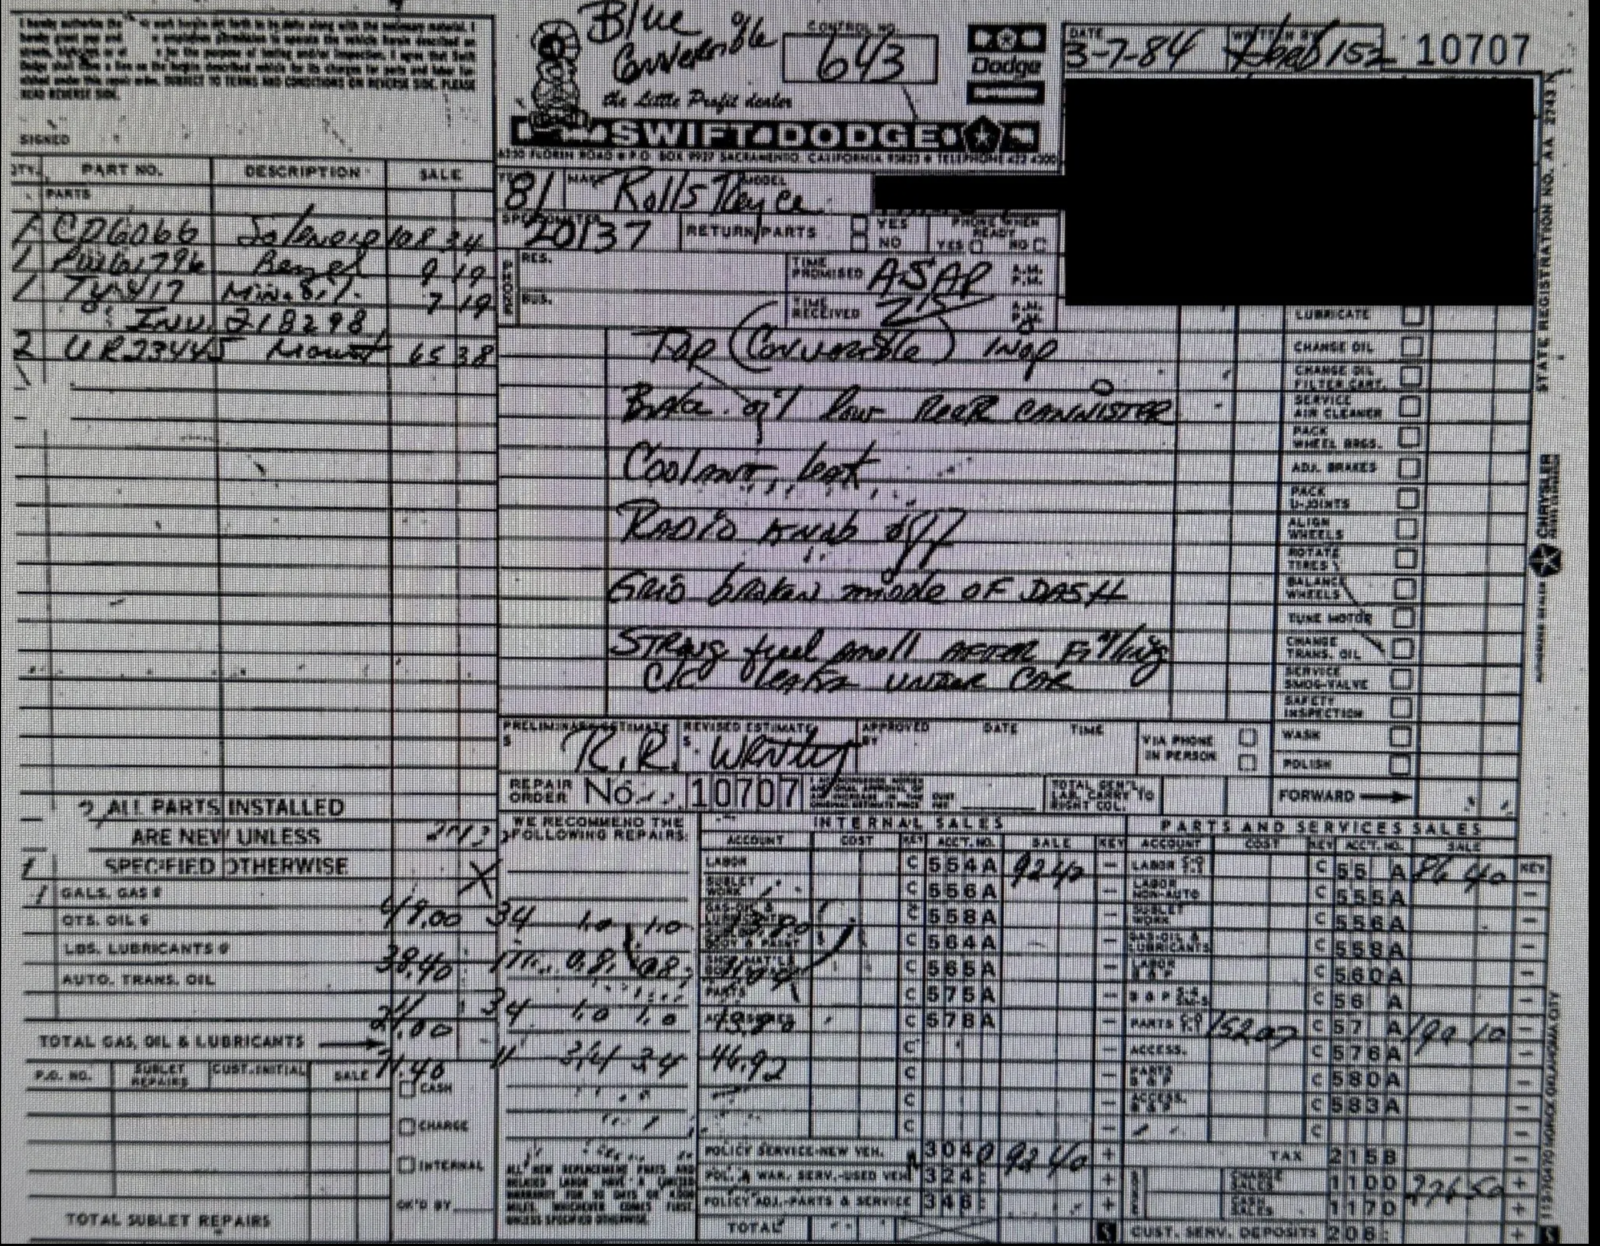 I hereby authorize the work herein set forth to be done along with the necessary material. I
hereby grant you and permission to operate the vehicle herein described on
streets, highways or for the purpose of testing and/or inspection. I agree that Swift
Dodge shall have a lien on the herein described vehicle for its charges for parts and labor
under this repair order. SUBJECT TO TERMS AND CONDITIONS ON REVERSE SIDE. PLEASE
READ REVERSE SIDE.
SIGNED
Blue
Convertible
CONTROL NO.
643
the Little Profit dealer
SWIFT DODGE
FLORIN ROAD P.O. BOX 9927 SACRAMENTO, CALIFORNIA 95823 TELEPHONE 422 4300
Dodge
DATE
3-7-84
WRITTEN BY
152
10707
STATE REGISTRATION NO. AA 2743
QTY. PART NO. DESCRIPTION SALE
PARTS
CD6066 Solenoid 108 34
1 Bezel 9 19
1 7 19
Inv. 218298
2 UR23445 Mount 65 38
81 MAKE Rolls Royce MODEL
SPEEDOMETER
20137
RETURN PARTS YES NO
PHONE WHEN READY YES NO
PHONE
RES.
BUS.
TIME PROMISED ASAP A.M. P.M.
TIME RECEIVED A.M. P.M.
Top (Convertible) Inop
Brake off low REAR CANNISTER
Coolant leak
RADIO Knob off
Grid broken middle OF DASH
STRONG fuel smell AFTER Filling
C/C leaks UNDER CAR
LUBRICATE
CHANGE OIL
CHANGE OIL FILTER CART.
SERVICE AIR CLEANER
PACK WHEEL BRGS.
ADJ. BRAKES
PACK U-JOINTS
ALIGN WHEELS
ROTATE TIRES
BALANCE WHEELS
TUNE MOTOR
CHANGE TRANS. OIL
SERVICE SMOG-VALVE
SAFETY INSPECTION
WASH
POLISH
FORWARD
AUTHORIZED DEALER CHRYSLER
PRELIMINARY ESTIMATE $
REVISED ESTIMATE $
APPROVED BY
DATE
TIME
VIA PHONE
IN PERSON
R.R. Wrnty
REPAIR ORDER No. 10707
TOTAL GEN'L LAB. CARRY TO RIGHT COL.
ALL PARTS INSTALLED
ARE NEW UNLESS
SPECIFIED OTHERWISE
GALS. GAS @
QTS. OIL @
LBS. LUBRICANTS @
AUTO. TRANS. OIL
TOTAL GAS, OIL & LUBRICANTS
49.00 34 1.0 1.0 13.80
38.40 0.8 0.8
21.00 34 1.0 1.0 13.80
71.40 11 3.4 3.4 46.92
P.O. NO. SUBLET REPAIRS CUST. INITIAL SALE
CASH
CHARGE
INTERNAL
OK'D BY
TOTAL SUBLET REPAIRS
WE RECOMMEND THE
FOLLOWING REPAIRS:
ALL NEW REPLACEMENT PARTS AND
RELATED LABOR HAVE A LIMITED
WARRANTY FOR 90 DAYS OR 4,000
MILES, WHICHEVER COMES FIRST,
UNLESS SPECIFIED OTHERWISE.
INTERNAL SALES
ACCOUNT COST KEY ACCT. NO. SALE KEY
LABOR C 554A 92 40
SUBLET WORK C 556A
GAS-OIL & LUBRICANTS C 558A
C 564A
C 565A
PARTS C 575A
ACCESSORIES C 578A
POLICY SERVICE-NEW VEH. 304 92 40 +
POL. & WAR. SERV.-USED VEH. 324 +
POLICY ADJ.-PARTS & SERVICE 346 +
TOTAL
PARTS AND SERVICES SALES
ACCOUNT COST KEY ACCT. NO. SALE KEY
LABOR C 55 A 86 40
LABOR NON-AUTO C 555A
SUBLET WORK C 556A
GAS-OIL & LUBRICANTS C 558A
LABOR B & P C 560A
C 56 A
PARTS 152 07 C 57 A 190 10
ACCESS. C 576A
PARTS B & P C 580A
ACCESS. B & P C 583A
C
TAX 215B
CHARGE SALES 110D 276 50 +
CASH SALES 117D +
CUST. SERV. DEPOSITS 206 +
NORICK OKLAHOMA CITY